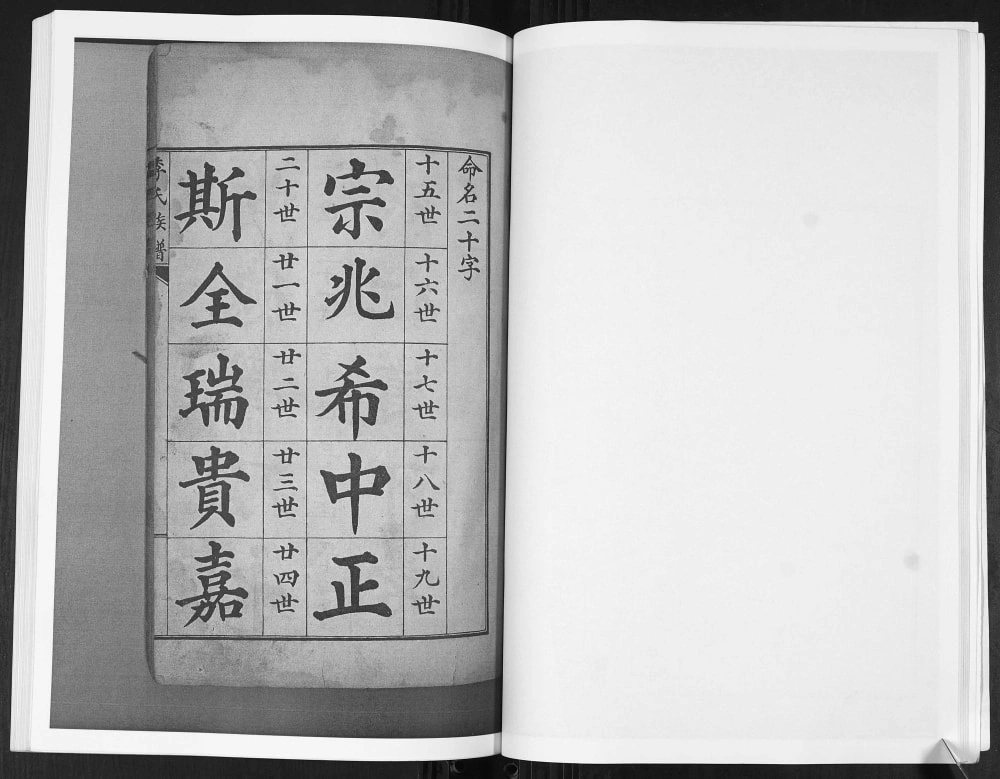 命名二十字
十五世
宗
十六世
兆
十七世
希
十八世
中
十九世
正
二十世
斯
廿一世
全
廿二世
瑞
廿三世
貴
廿四世
嘉
李氏族譜